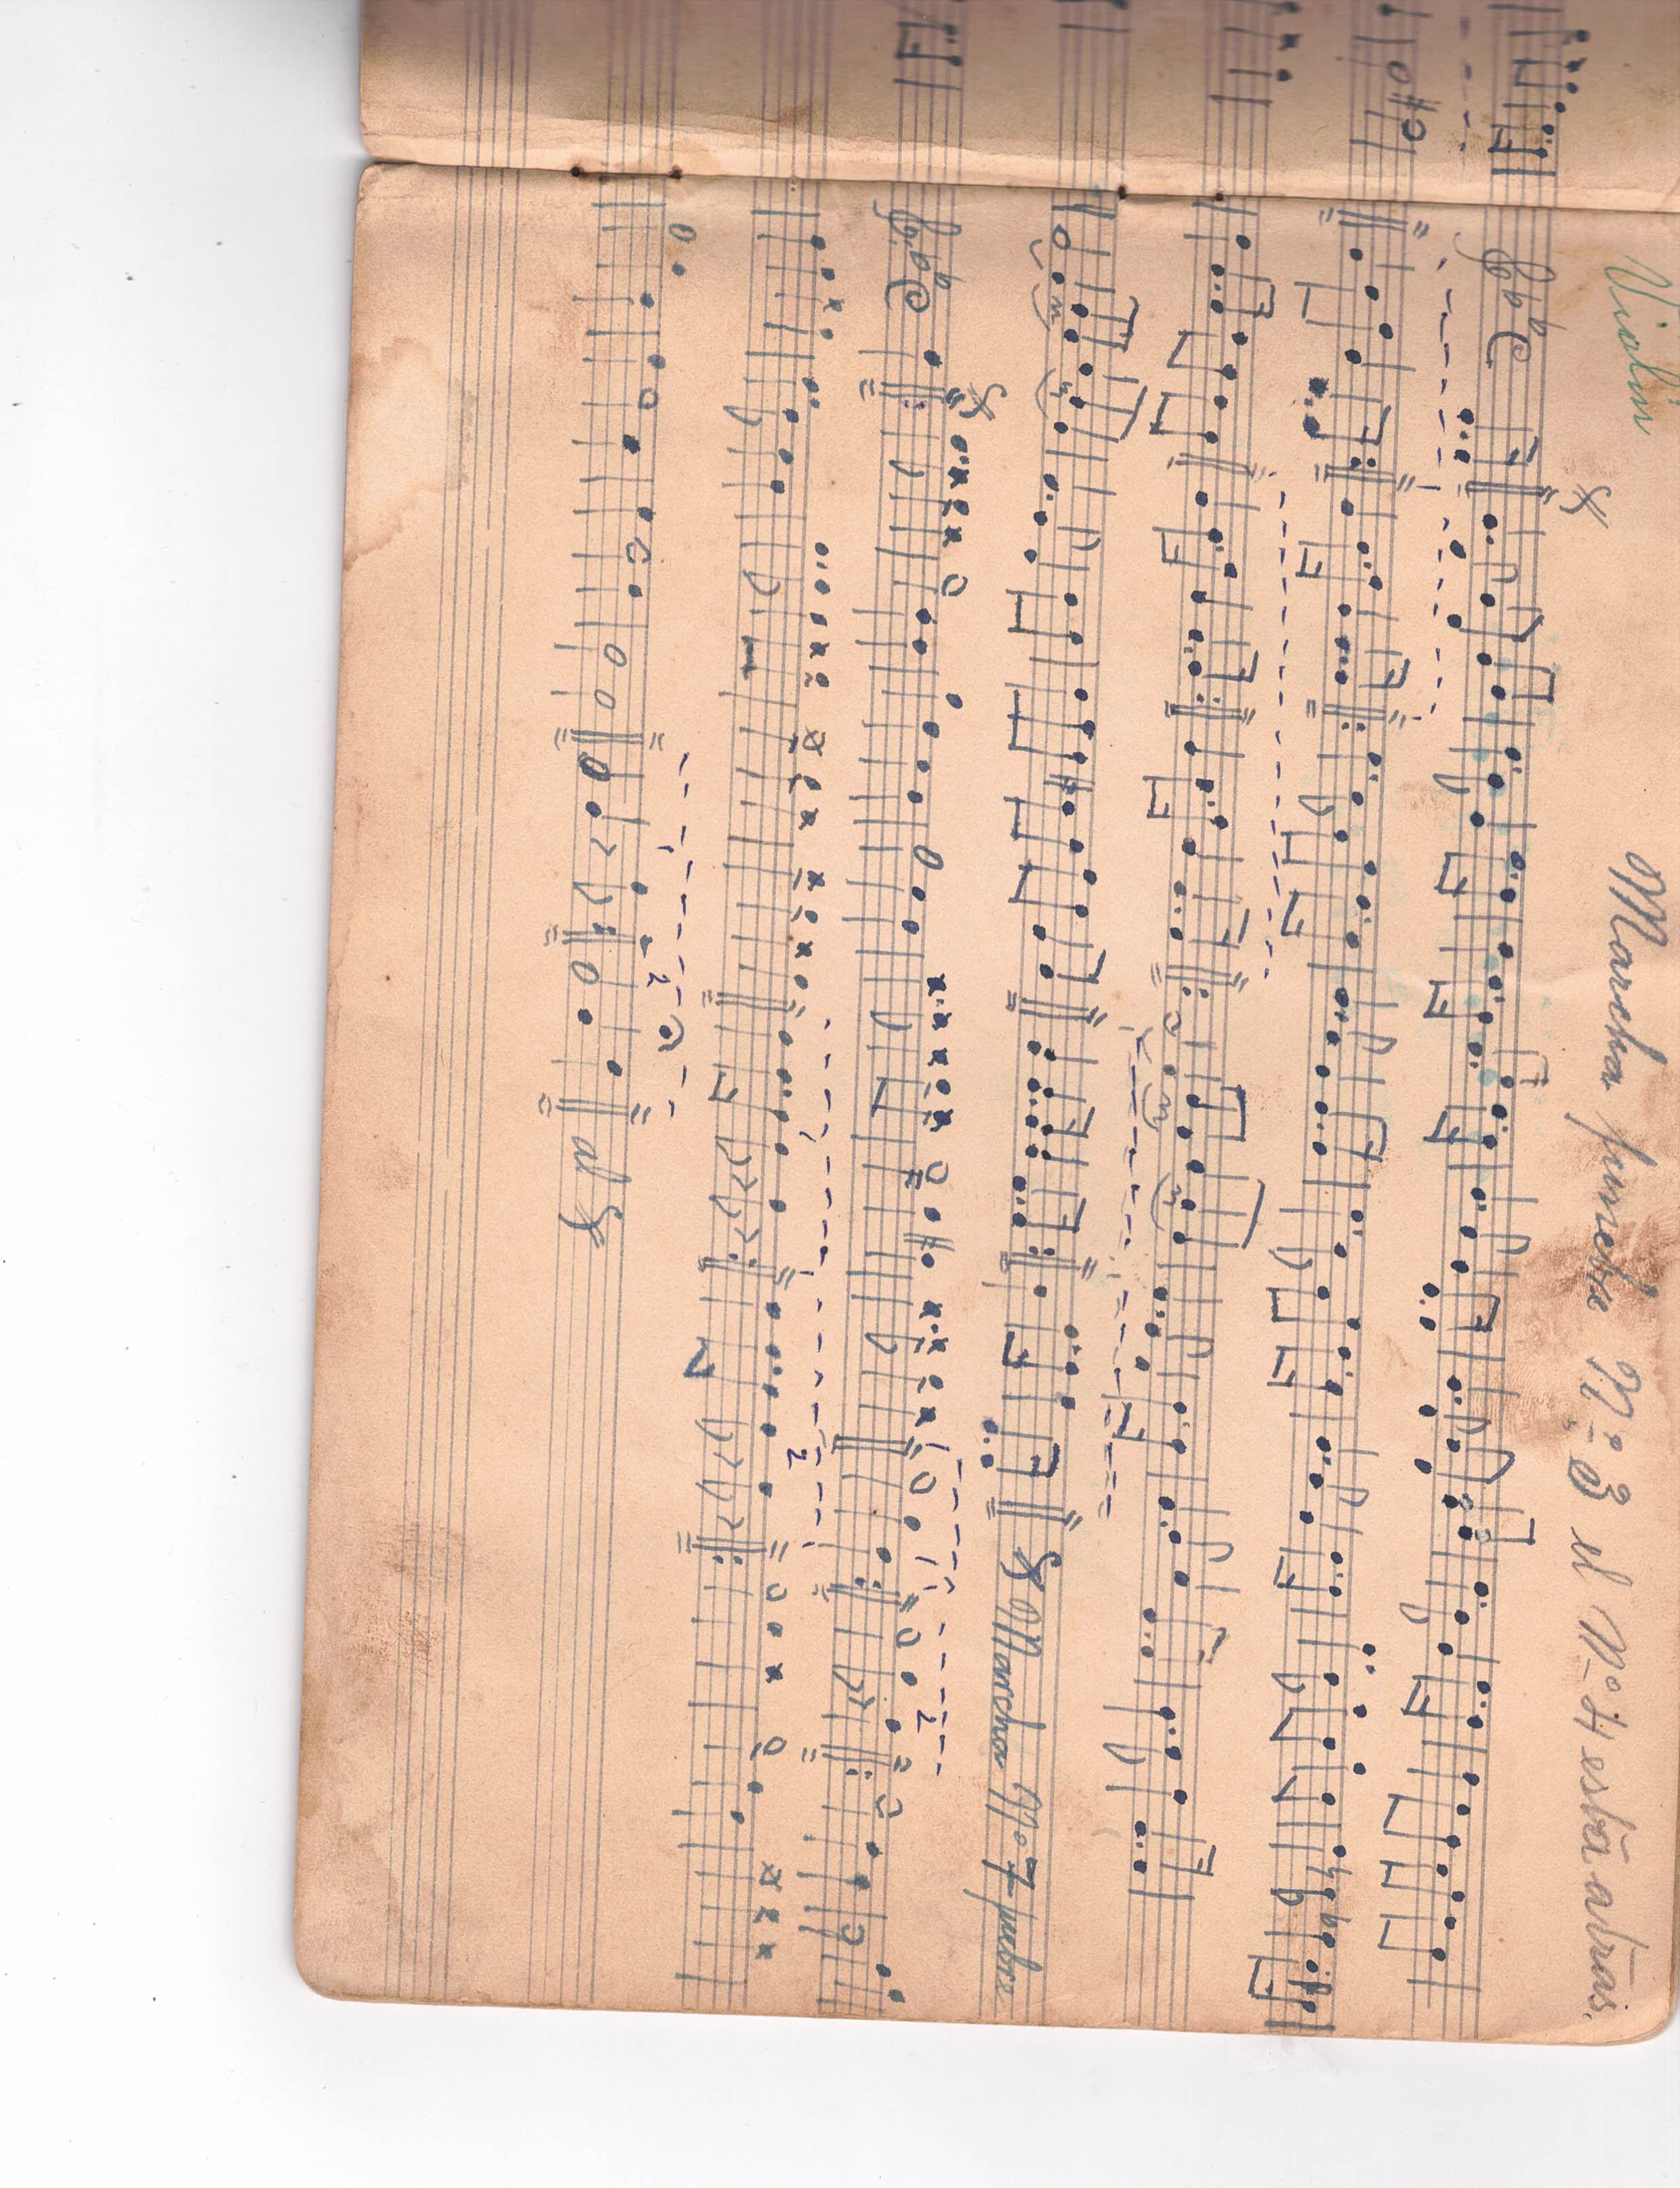 Violin
Marcha funebre Nº 3 el Nº 4 está atrás.
Marcha Nº 7 fubre
1
2
1
2
1
2
al